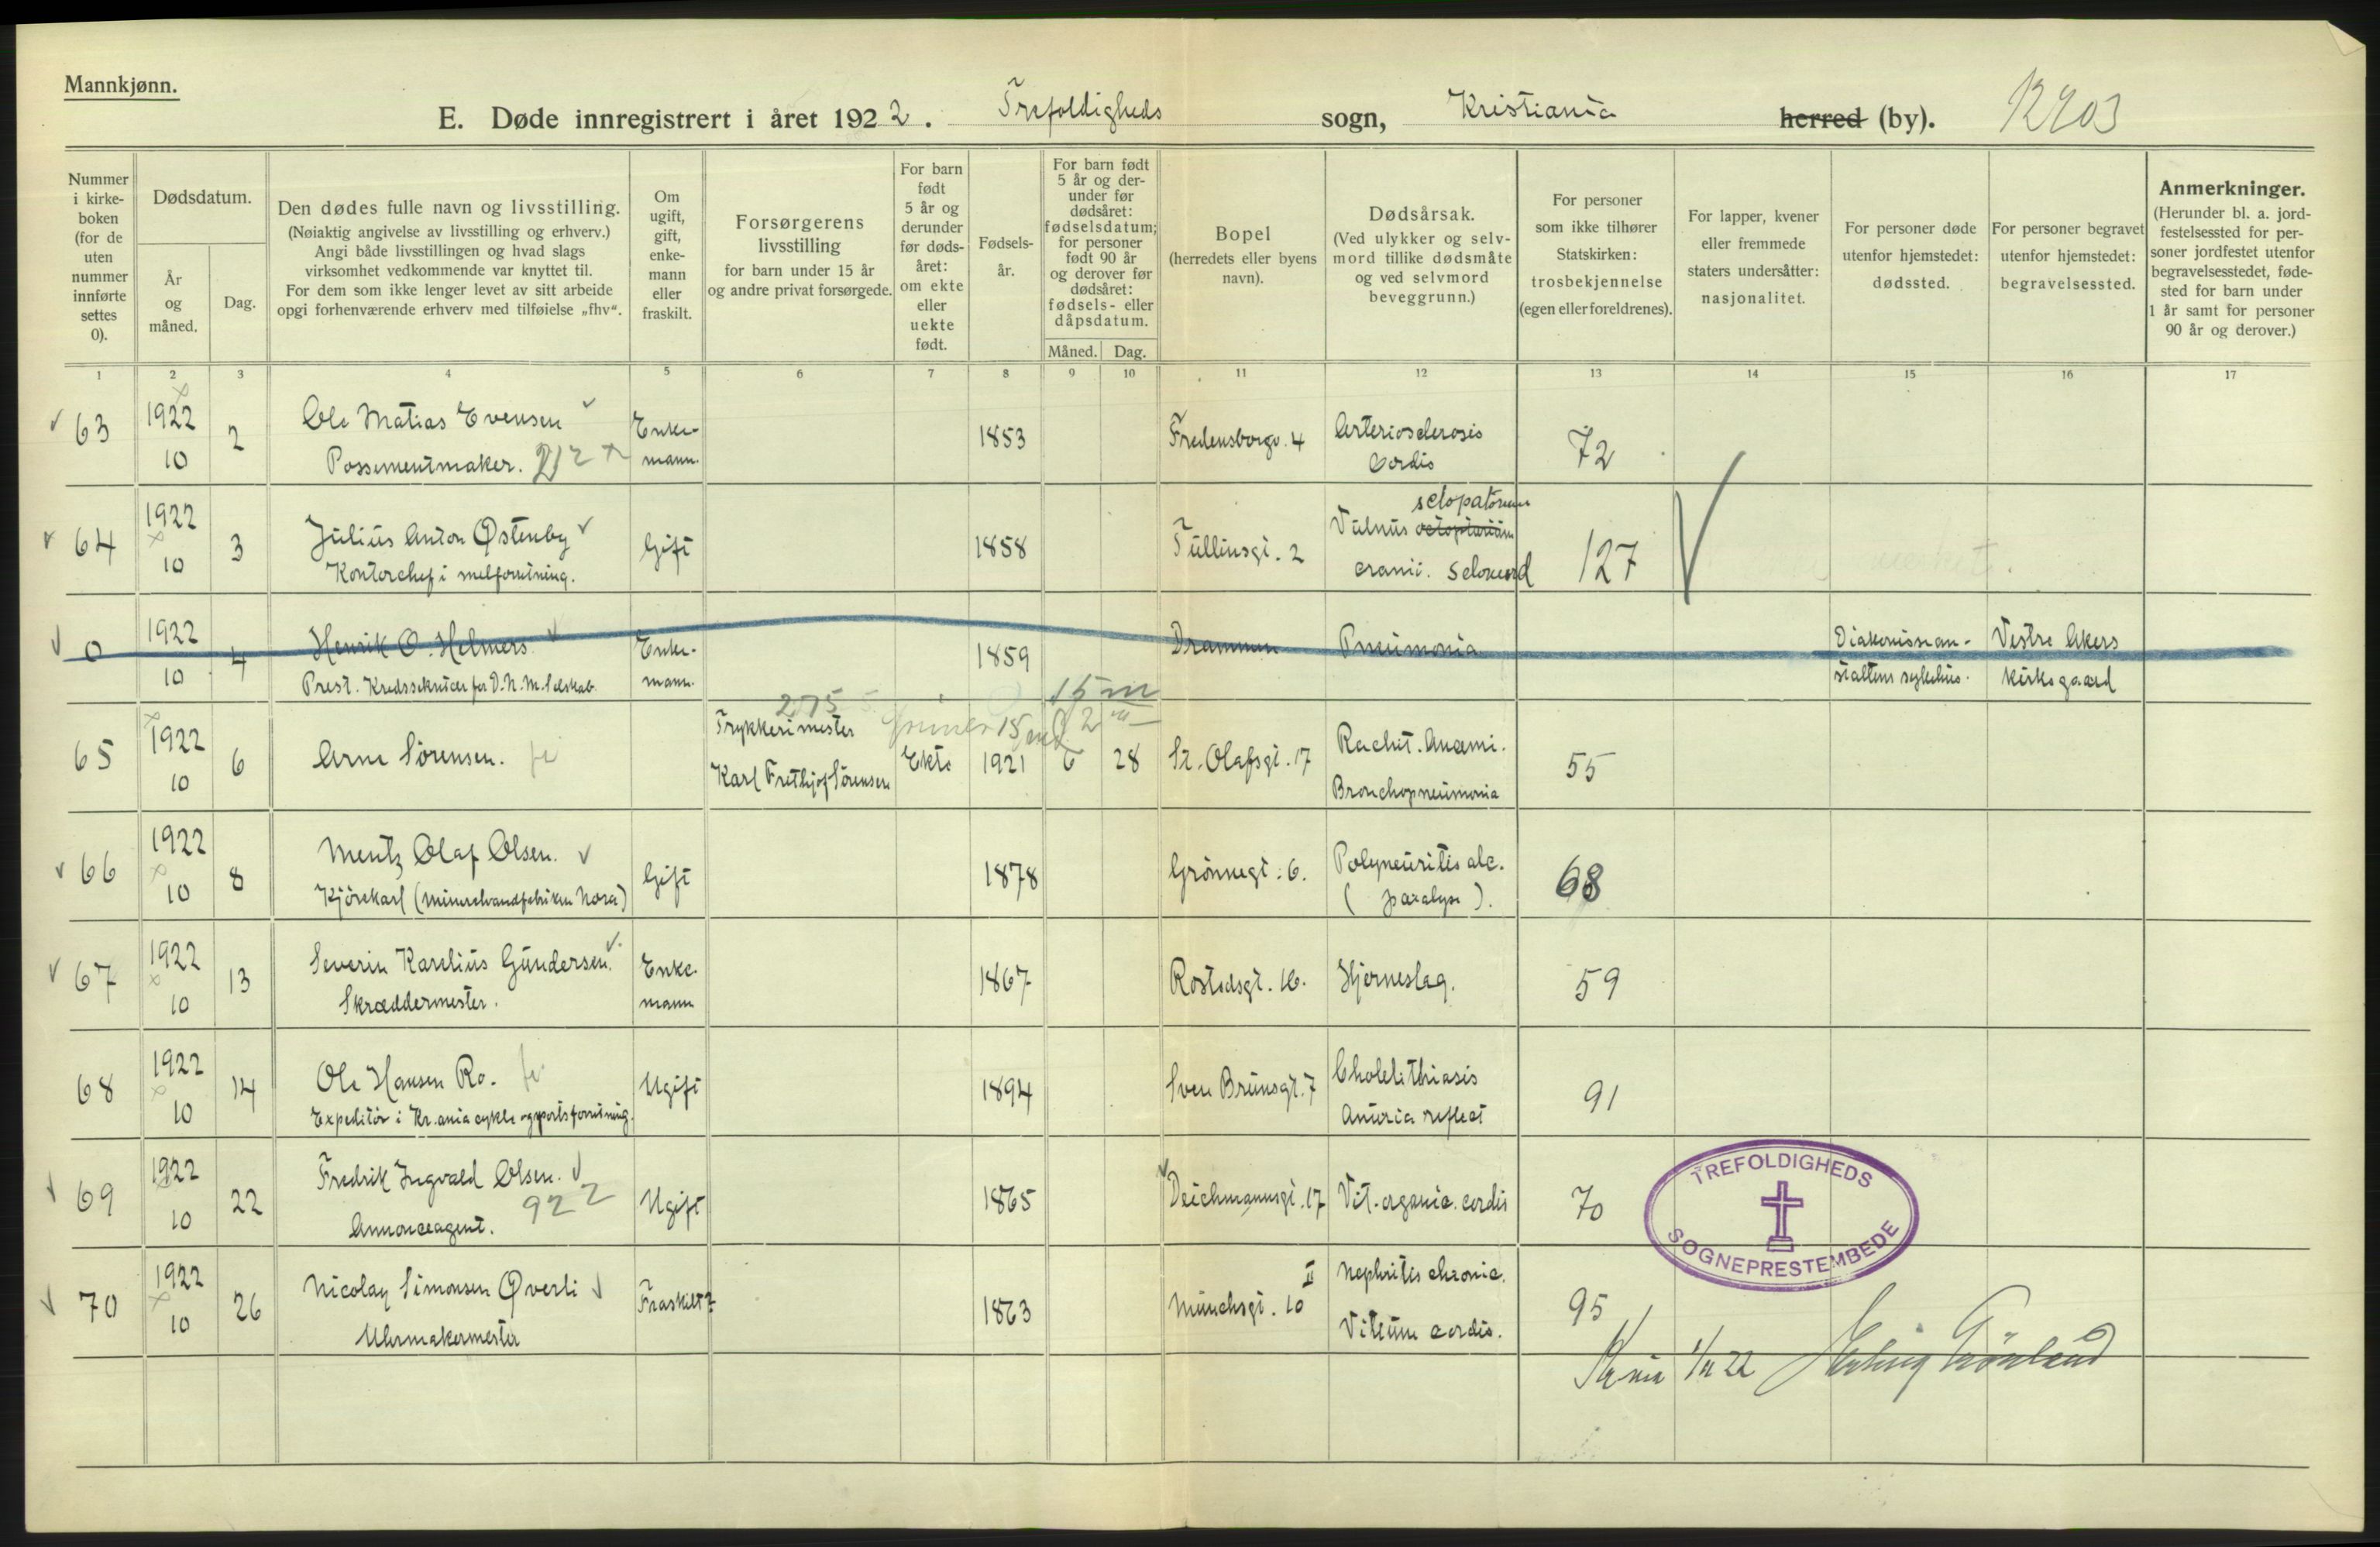 Mannkjønn.
E. Døde innregistrert i året 1922. Trefoldigheds sogn, Kristiania herred (by). 12403
Nummer i kirke-boken (for de uten nummer innførte settes 0).
Dødsdatum.
År og måned.
Dag.
Den dødes fulle navn og livsstilling.
(Nøiaktig angivelse av livsstilling og erhverv.)
Angi både livsstillingen og hvad slags
virksomhet vedkommende var knyttet til.
For dem som ikke lenger levet av sitt arbeide
opgi forhenværende erhverv med tilføielse „fhv“.
Om ugift, gift, enke-mann eller fraskilt.
Forsørgerens
livsstilling
for barn under 15 år
og andre privat forsørgede.
For barn født 5 år og derunder før døds-året: om ekte eller uekte født.
Fødsels-år.
For barn født 5 år og der-under før dødsåret: fødselsdatum; for personer født 90 år og derover før dødsåret: fødsels- eller dåpsdatum.
Måned. Dag.
Bopel
(herredets eller byens
navn).
Dødsårsak.
(Ved ulykker og selv-
mord tillike dødsmåte
og ved selvmord
beveggrunn.)
For personer
som ikke tilhører
Statskirken:
trosbekjennelse
(egen eller foreldrenes).
For lapper, kvener
eller fremmede
staters undersåtter:
nasjonalitet.
For personer døde
utenfor hjemstedet:
dødssted.
For personer begravet
utenfor hjemstedet:
begravelsessted.
Anmerkninger.
(Herunder bl. a. jord-
festelsessted for per-
soner jordfestet utenfor
begravelsesstedet, føde-
sted for barn under
1 år samt for personer
90 år og derover.)
1 2 3 4 5 6 7 8 9 10 11 12 13 14 15 16 17
63 1922 10 2 Ole Matias Evensen Enke- 1853 Fredensborgv. 4 Arteriosclerosis 72
Possementmaker. mann. Cordis
64 1922 10 3 Julius Anton Østenby Gift 1858 Tullinsgt. 2 Vulnus sclopatorium 127
Kontorchef i melforretning. cranii. Selvmord
0 1922 10 4 Henrik O. Helmers Enke- 1859 Drammen Pneumonia Diakonissean- Vestre Akers
Prest. Kredssekretær for D.N.M. Selskab mann. staltens sykehus. kirkegaard
15 m
65 1922 10 6 Arne Sørensen. Trykkerimester Ekte 1921 6 28 St. Olafsgt. 17 Rachit. Anæmi. 55
Karl Frethjof Sørensen Bronchopneumonia
66 1922 10 8 Mentz Olaf Olsen. Gift 1878 Grønnegt. 6. Polyneuritis alc. 68
Kjørekarl (mineralvandfabriken Nora) (paralyse).
67 1922 10 13 Severin Karelius Gundersen. Enke- 1867 Rostedsgt. 16. Hjerneslag. 59
Skræddermester. mann
68 1922 10 14 Ole Hansen Ro. Ugift 1894 Sven Brunsgt. 7 Cholelithiasis 91
Expeditør i Kr.ania cykle og sportsforretning. Anuria reflect
69 1922 10 22 Fredrik Ingvald Olsen. Ugift 1865 Deichmannsgt. 17 Vit. organic. cordis 70
Annonceagent. 922
70 1922 10 26 Nicolay Simonsen Øverli Fraskilt? 1863 Munchsgt. 10 II Nephritis chronic. 95
Uhrmakermester Vitium cordis.
TREFOLDIGHEDS
SOGNEPRESTEMBEDE